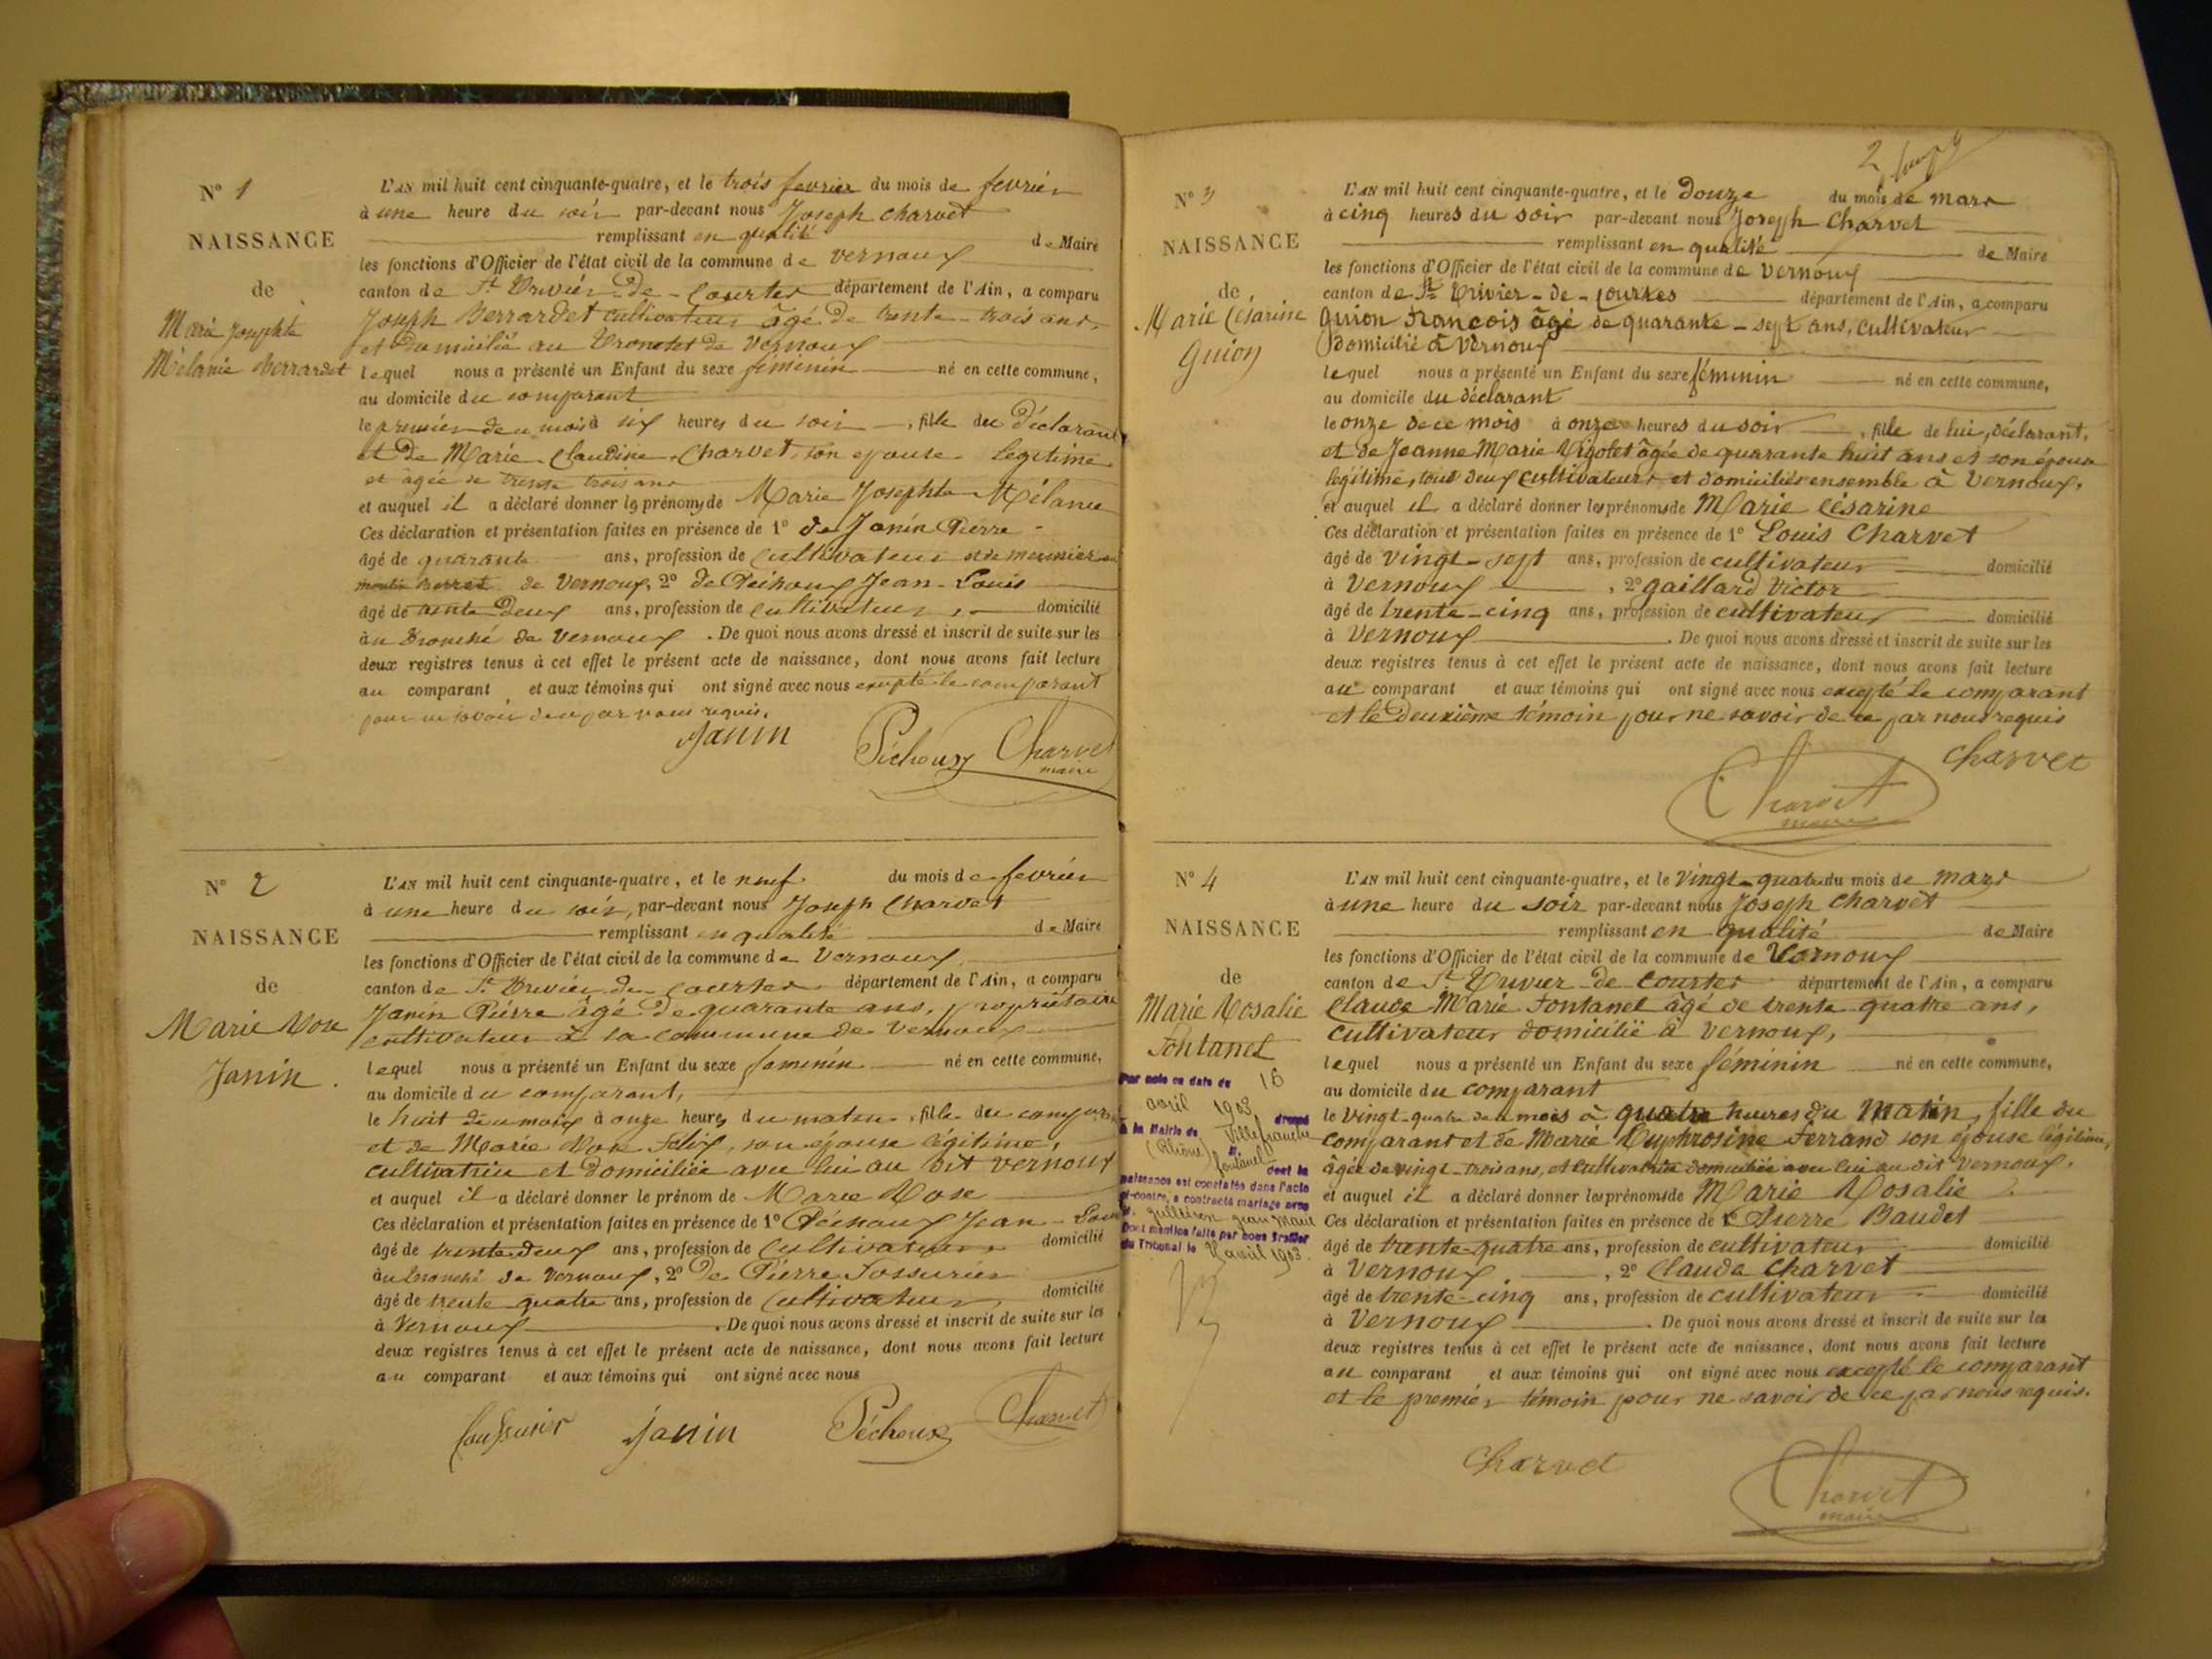 N° 1
NAISSANCE
de
Marie Josephte
Mélanie Berrardet
L'AN mil huit cent cinquante-quatre, et le trois fevrier du mois de fevrier
à une heure du soir par-devant nous Joseph Charvet
remplissant en qualité de Maire
les fonctions d'Officier de l'état civil de la commune de Vernoux
canton de St Trivier-de-Courtes département de l'Ain, a comparu
Joseph Berrardet cultivateur âgé de trente-trois ans
et domicilié au de Vernoux
lequel nous a présenté un Enfant du sexe féminin né en cette commune,
au domicile du comparant
le premier de ce mois à six heures du soir, fille du déclarant
et de Marie Claudine Charvet, son epouse legitime
et agée de trente trois ans
et auquel il a déclaré donner les prénoms de Marie Josephte Mélanie
Ces déclaration et présentation faites en présence de 1° de Janin Pierre
âgé de quarante ans, profession de cultivateur et de meunier au
moulin de Vernoux, 2° de Péchoux Jean-Louis
âgé de trente deux ans, profession de cultivateur, domicilié
au de Vernoux. De quoi nous avons dressé et inscrit de suite sur les
deux registres tenus à cet effet le présent acte de naissance, dont nous avons fait lecture
au comparant et aux témoins qui ont signé avec nous excepté le comparant
pour ne savoir de ce par nous requis.
Janin Péchoux Charvet
maire
N° 2
NAISSANCE
de
Marie Rose
Janin.
L'AN mil huit cent cinquante-quatre, et le neuf du mois de fevrier
à une heure du soir, par-devant nous Joseph Charvet
remplissant en qualité de Maire
les fonctions d'Officier de l'état civil de la commune de Vernoux
canton de St Trivier de Courtes département de l'Ain, a comparu
Janin Pierre âgé de quarante ans, propriétaire
cultivateur à la commune de Vernoux
lequel nous a présenté un Enfant du sexe feminin né en cette commune,
au domicile du comparant,
le huit de ce mois à onze heures du matin, fille du comparant
et de Marie Rose Felix, son épouse légitime,
cultivatrice et domiciliée avec lui au dit Vernoux
et auquel il a déclaré donner le prénom de Marie Rose
Ces déclaration et présentation faites en présence de 1° Péchoux Jean-Louis
âgé de trente deux ans, profession de Cultivateur domicilié
au de Vernoux, 2° de Pierre
âgé de trente quatre ans, profession de Cultivateur, domicilié
à Vernoux. De quoi nous avons dressé et inscrit de suite sur les
deux registres tenus à cet effet le présent acte de naissance, dont nous avons fait lecture
au comparant et aux témoins qui ont signé avec nous
Janin Péchoux Charvet
2
N° 3
NAISSANCE
de
Marie Césarine
Guion
L'AN mil huit cent cinquante-quatre, et le Douze du mois de mars
à cinq heures du soir par-devant nous Joseph Charvet
remplissant en qualité de Maire
les fonctions d'Officier de l'état civil de la commune de Vernoux
canton de St Trivier-de-Courtes département de l'Ain, a comparu
Guion François âgé de quarante-sept ans, cultivateur
domicilié à Vernoux
lequel nous a présenté un Enfant du sexe féminin né en cette commune,
au domicile du déclarant
le onze de ce mois à onze heures du soir, fille de lui, déclarant,
et de Jeanne Marie Rigolet âgée de quarante huit ans et son épouse
légitime, tous deux cultivateurs et domiciliés ensemble à Vernoux.
et auquel il a déclaré donner les prénoms de Marie Césarine
Ces déclaration et présentation faites en présence de 1° Louis Charvet
âgé de vingt-sept ans, profession de cultivateur domicilié
à Vernoux, 2° gaillard Victor
âgé de trente-cinq ans, profession de cultivateur domicilié
à Vernoux. De quoi nous avons dressé et inscrit de suite sur les
deux registres tenus à cet effet le présent acte de naissance, dont nous avons fait lecture
au comparant et aux témoins qui ont signé avec nous excepté le comparant
et le Deuxième témoin pour ne savoir de ce par nous requis
Charvet
Charvet
maire
N° 4
NAISSANCE
de
Marie Rosalie
Fontanet
Par acte en date du 16
avril 1903 dressé
à la Mairie de Villefranche
(Rhône)
fontanel dont la
naissance est constatée dans l'acte
ci-contre, a contracté mariage avec
Jean Marie
Dont mention faite par nous Greffier
du Tribunal le avril 1903.
L'AN mil huit cent cinquante-quatre, et le vingt-quatre du mois de mars
à une heure du soir par-devant nous Joseph Charvet
remplissant en qualité de Maire
les fonctions d'Officier de l'état civil de la commune de Vernoux
canton de St Trivier de Courtes département de l'Ain, a comparu
Claude Marie Fontanet âgé de trente quatre ans,
cultivateur domicilié à Vernoux,
lequel nous a présenté un Enfant du sexe féminin né en cette commune,
au domicile du comparant
le vingt-quatre de ce mois à quatre heures du matin, fille du
comparant et de Marie Euphrosine Ferrand son épouse légitime,
âgée de vingt-trois ans, et cultivatrice domiciliée avec lui au dit Vernoux.
et auquel il a déclaré donner les prénoms de Marie Rosalie
Ces déclaration et présentation faites en présence de 1° Pierre Baudet
âgé de trente-quatre ans, profession de cultivateur domicilié
à Vernoux, 2° Claude Charvet
âgé de trente-cinq ans, profession de cultivateur domicilié
à Vernoux. De quoi nous avons dressé et inscrit de suite sur les
deux registres tenus à cet effet le présent acte de naissance, dont nous avons fait lecture
au comparant et aux témoins qui ont signé avec nous excepté le comparant
et le premier témoin pour ne savoir de ce par nous requis.
Charvet
Charvet
maire